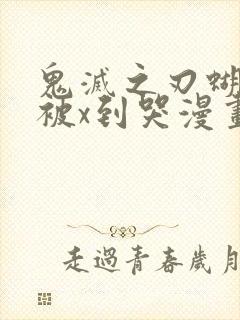 鬼滅之刃蝴
被x到哭漫畫
走過青春歲月